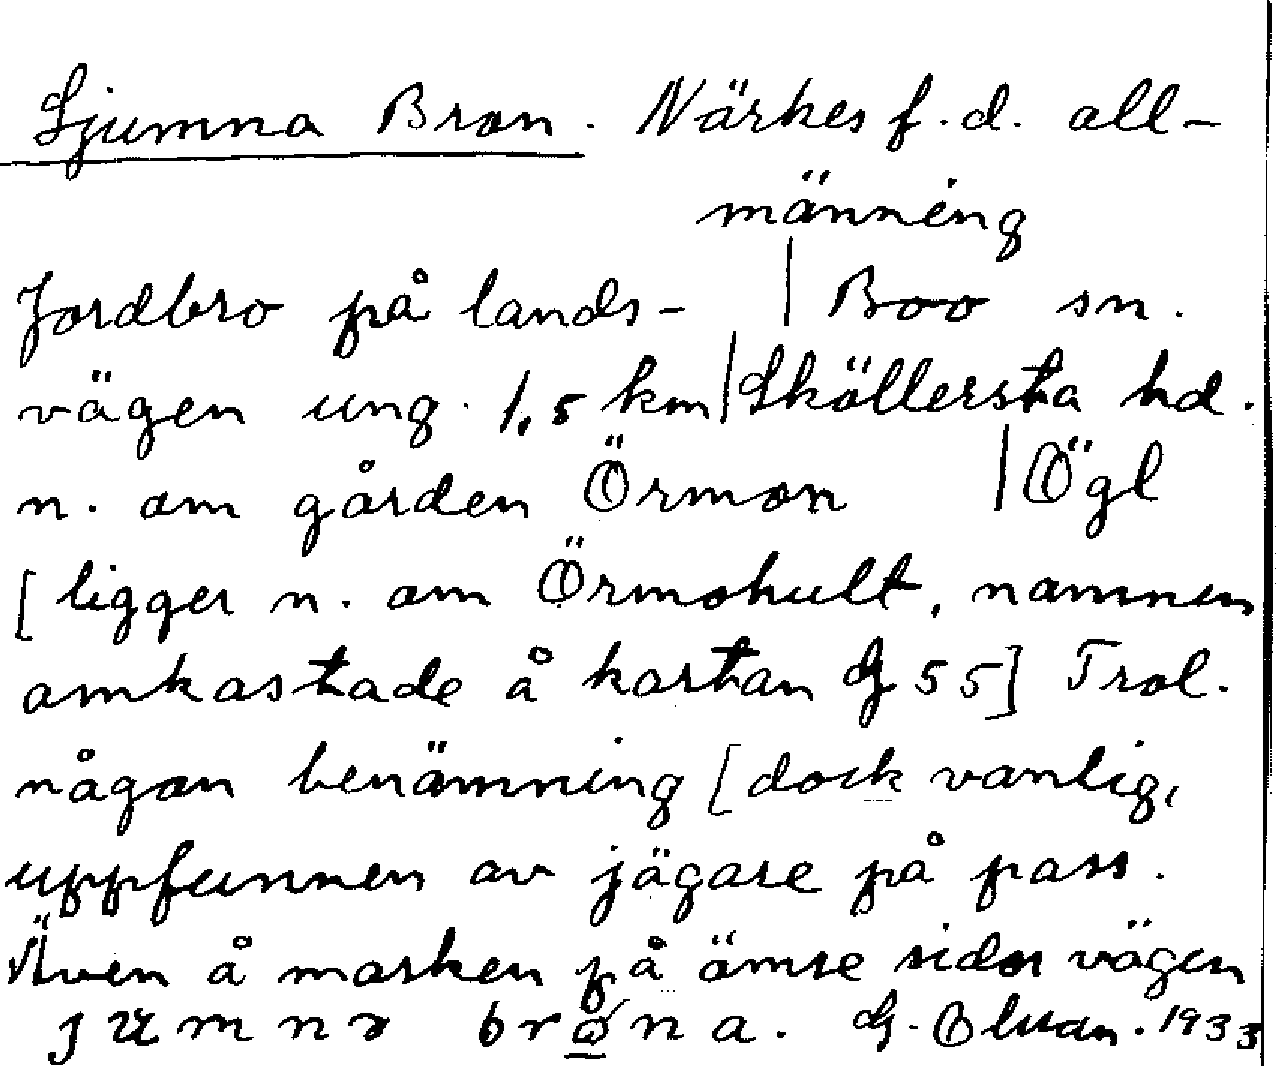 Ljumna Bron. Närkes f.d. all-
männing
Jordbro på lands- | Boo sn.
vägen ung. 1,5 km | Sköllersta hd.
n. om gården Örmon | Ögl
[ligger n. om Örmohult, namnen
omkastade å kartan G 55] Trol.
någon benämning [dock vanlig,
uppfunnen av jägare på pass.
Även å marken på ömse sidor vägen
jumna brona. G. 1933